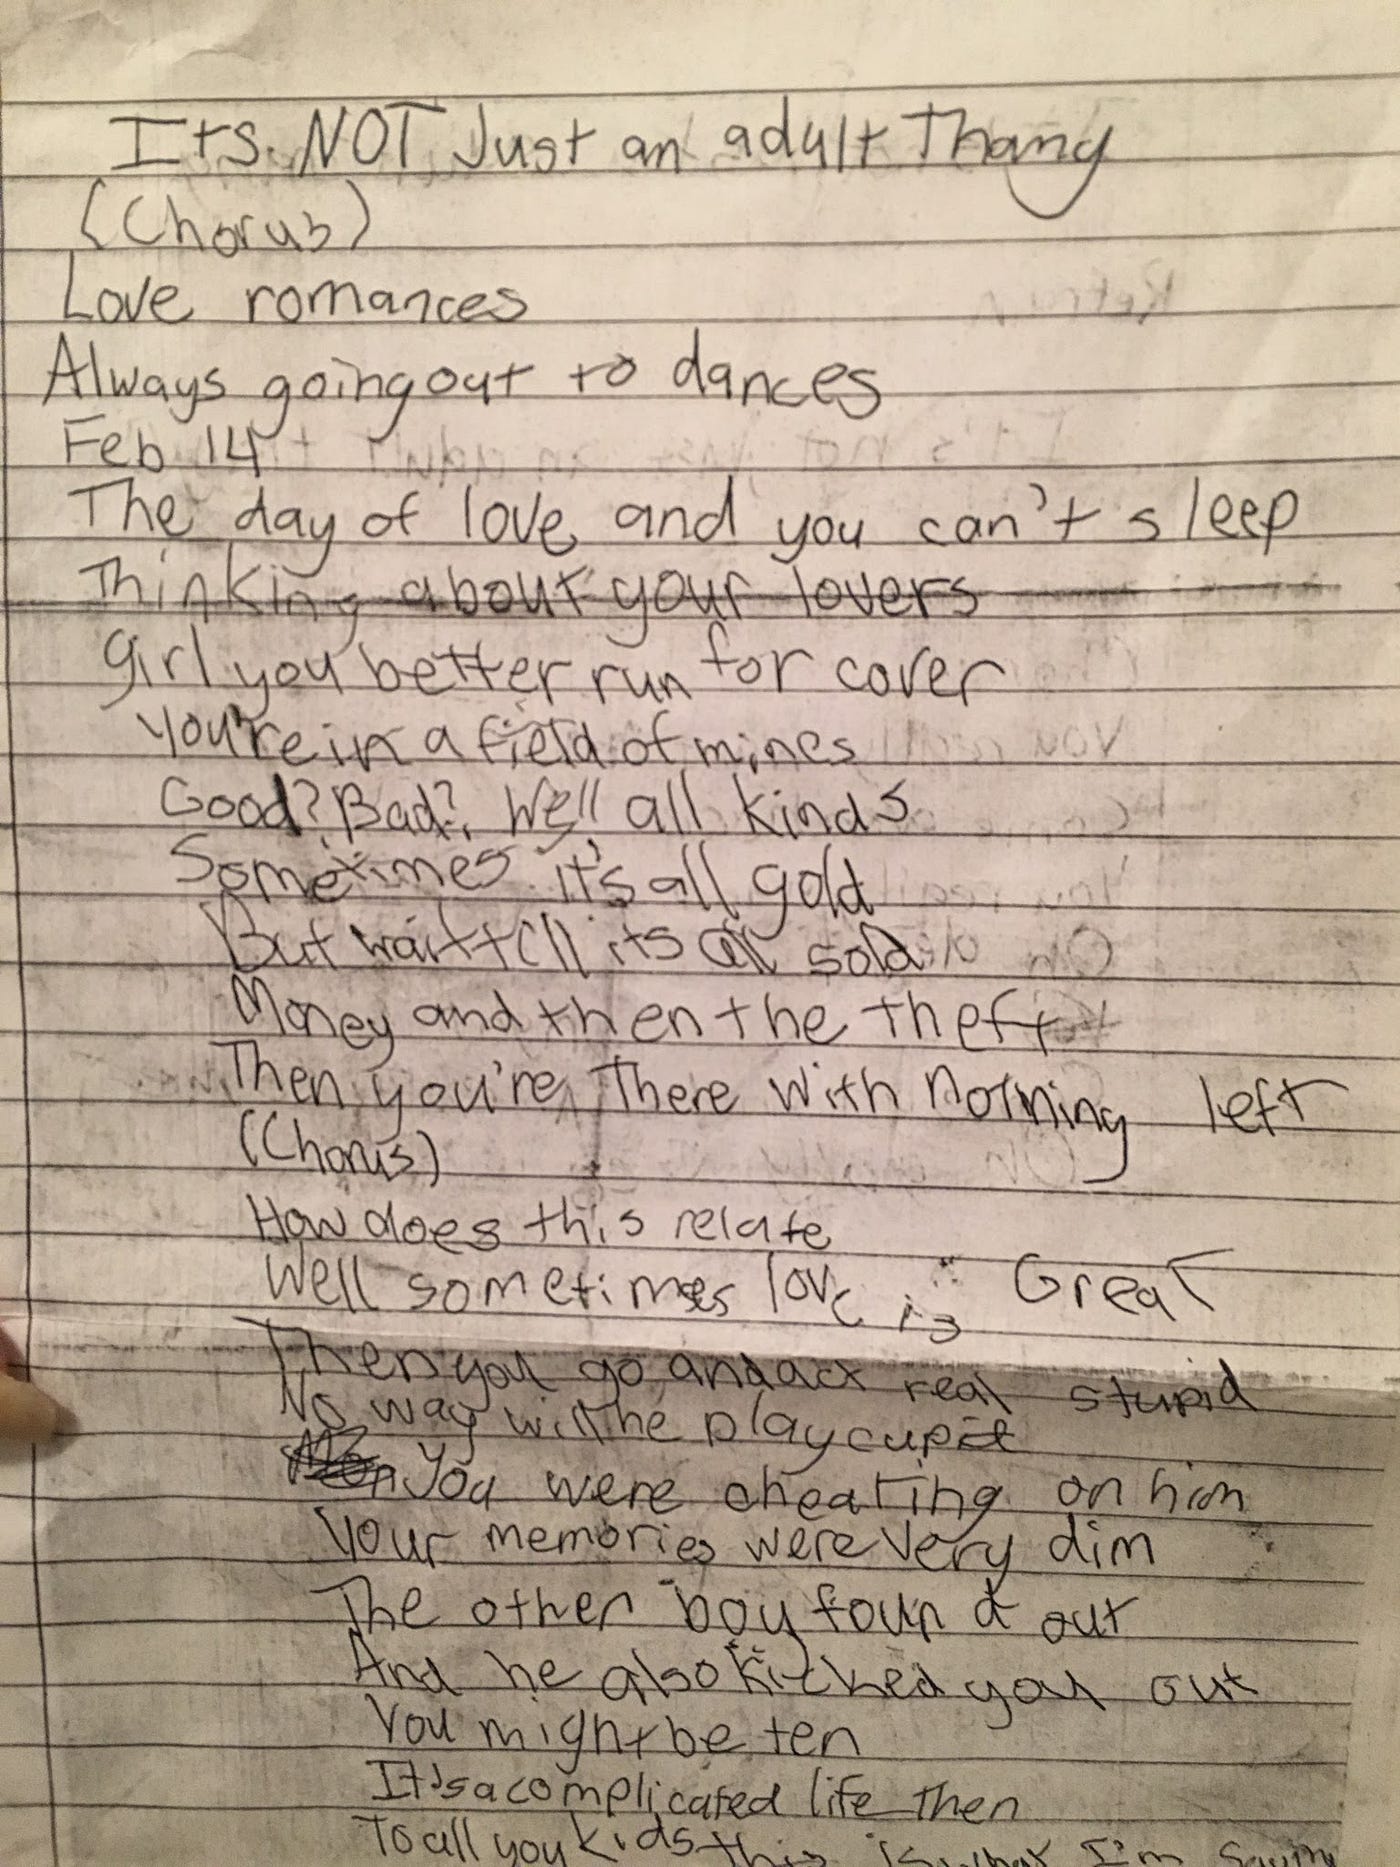 Its NOT Just an adult Thang
(Chorus)
Love romances
Always going out to dances
Feb 14
The day of love and you can't sleep
Thinking about your lovers
girl you better run for cover
You're in a field of mines
Good? Bad? Well all kinds
Sometimes it's all gold
But wait till its all sold
Money and then the theft
Then you're There with nothing left
(Chorus)
How does this relate
Well sometimes love is Great
Then you go and act real stupid
No way will he play cupid
You were cheating on him
Your memories were very dim
The other boy found out
And he also kicked you out
You might be ten
It's a complicated life then
To all you kids this is what I'm saying